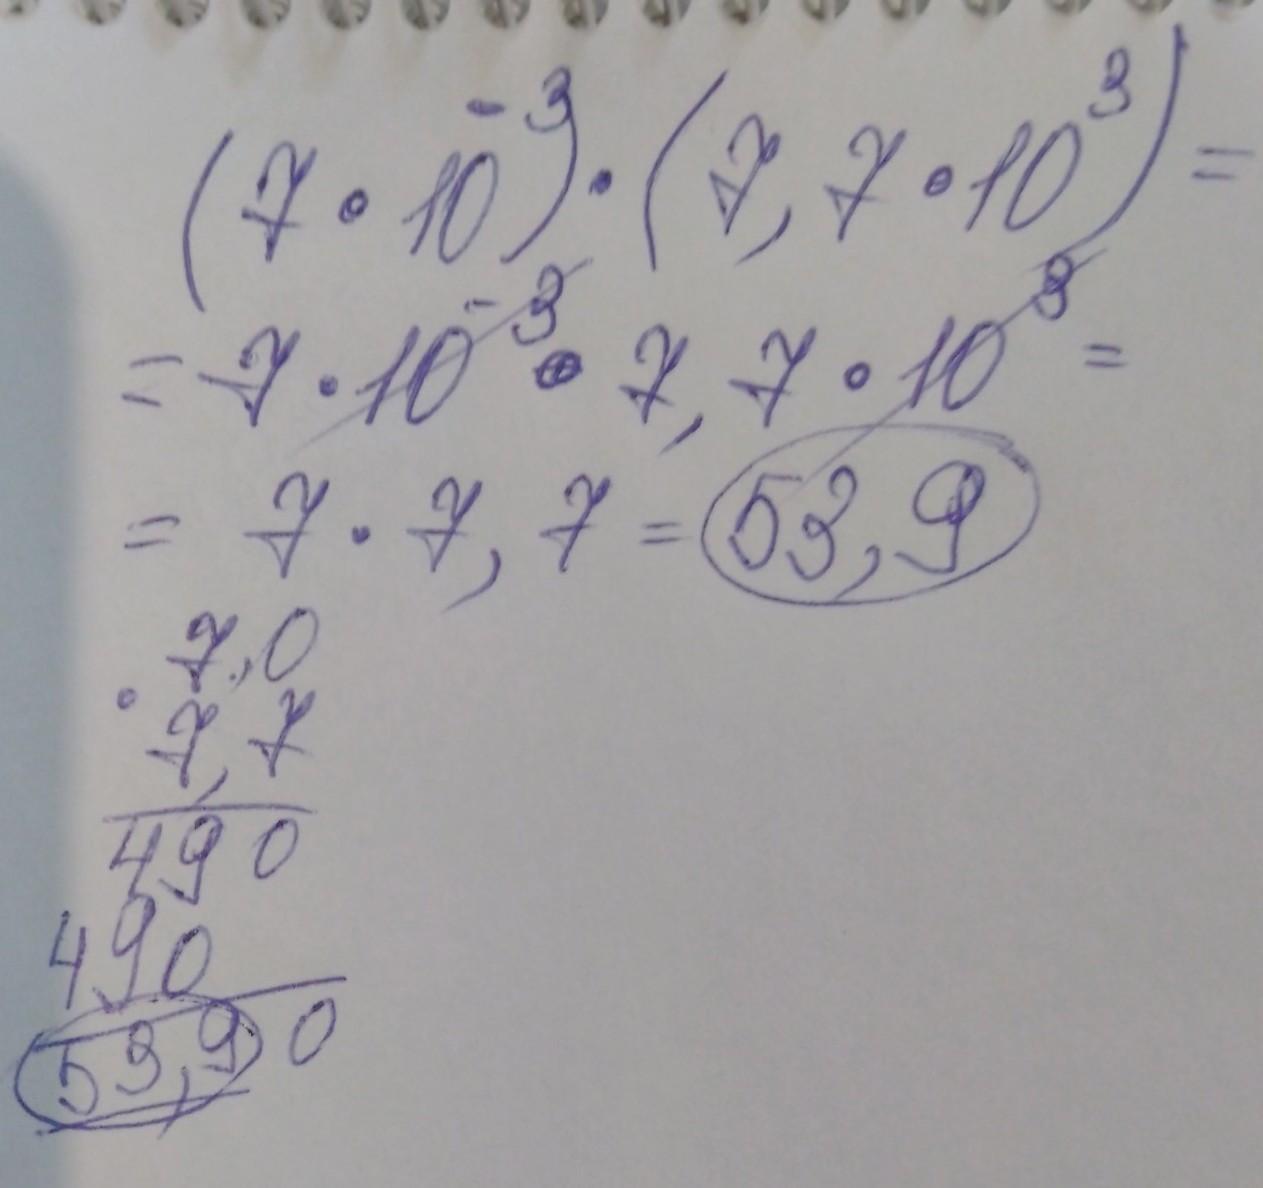 (7 · 10⁻³) · (7,7 · 10³) =
= 7 · 10⁻³ · 7,7 · 10³ =
= 7 · 7,7 = 53,9
7,0
·
7,7
490
490
53,90